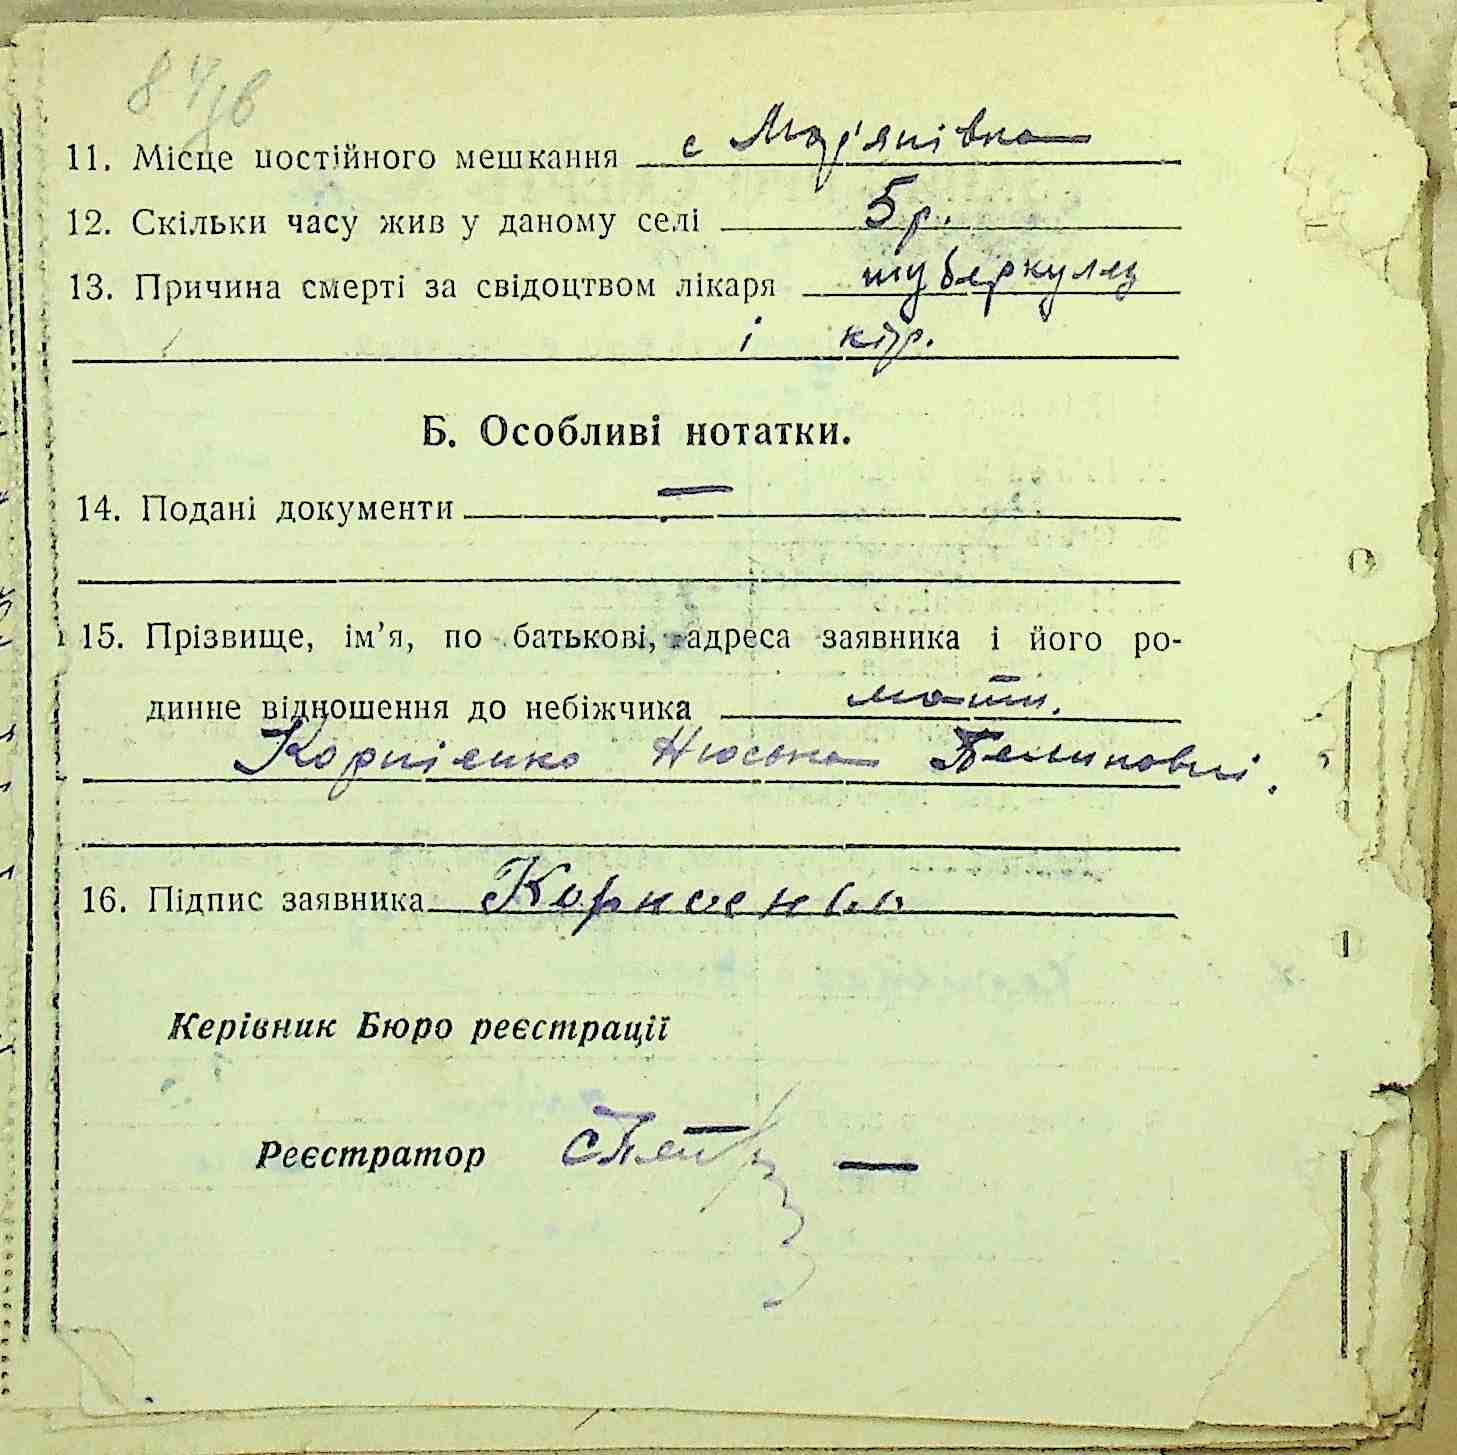 84
11. Місце постійного мешкання с Мар'янівка
12. Скільки часу жив у даному селі 5 р.
13. Причина смерті за свідоцтвом лікаря туберкулез
і кір.
Б. Особливі нотатки.
14. Подані документи —
15. Прізвище, ім’я, по батькові, адреса заявника і його ро-
динне відношення до небіжчика мати.
Корнієнко Нюська
16. Підпис заявника Корниенко
Керівник Бюро реєстрації
Реєстратор